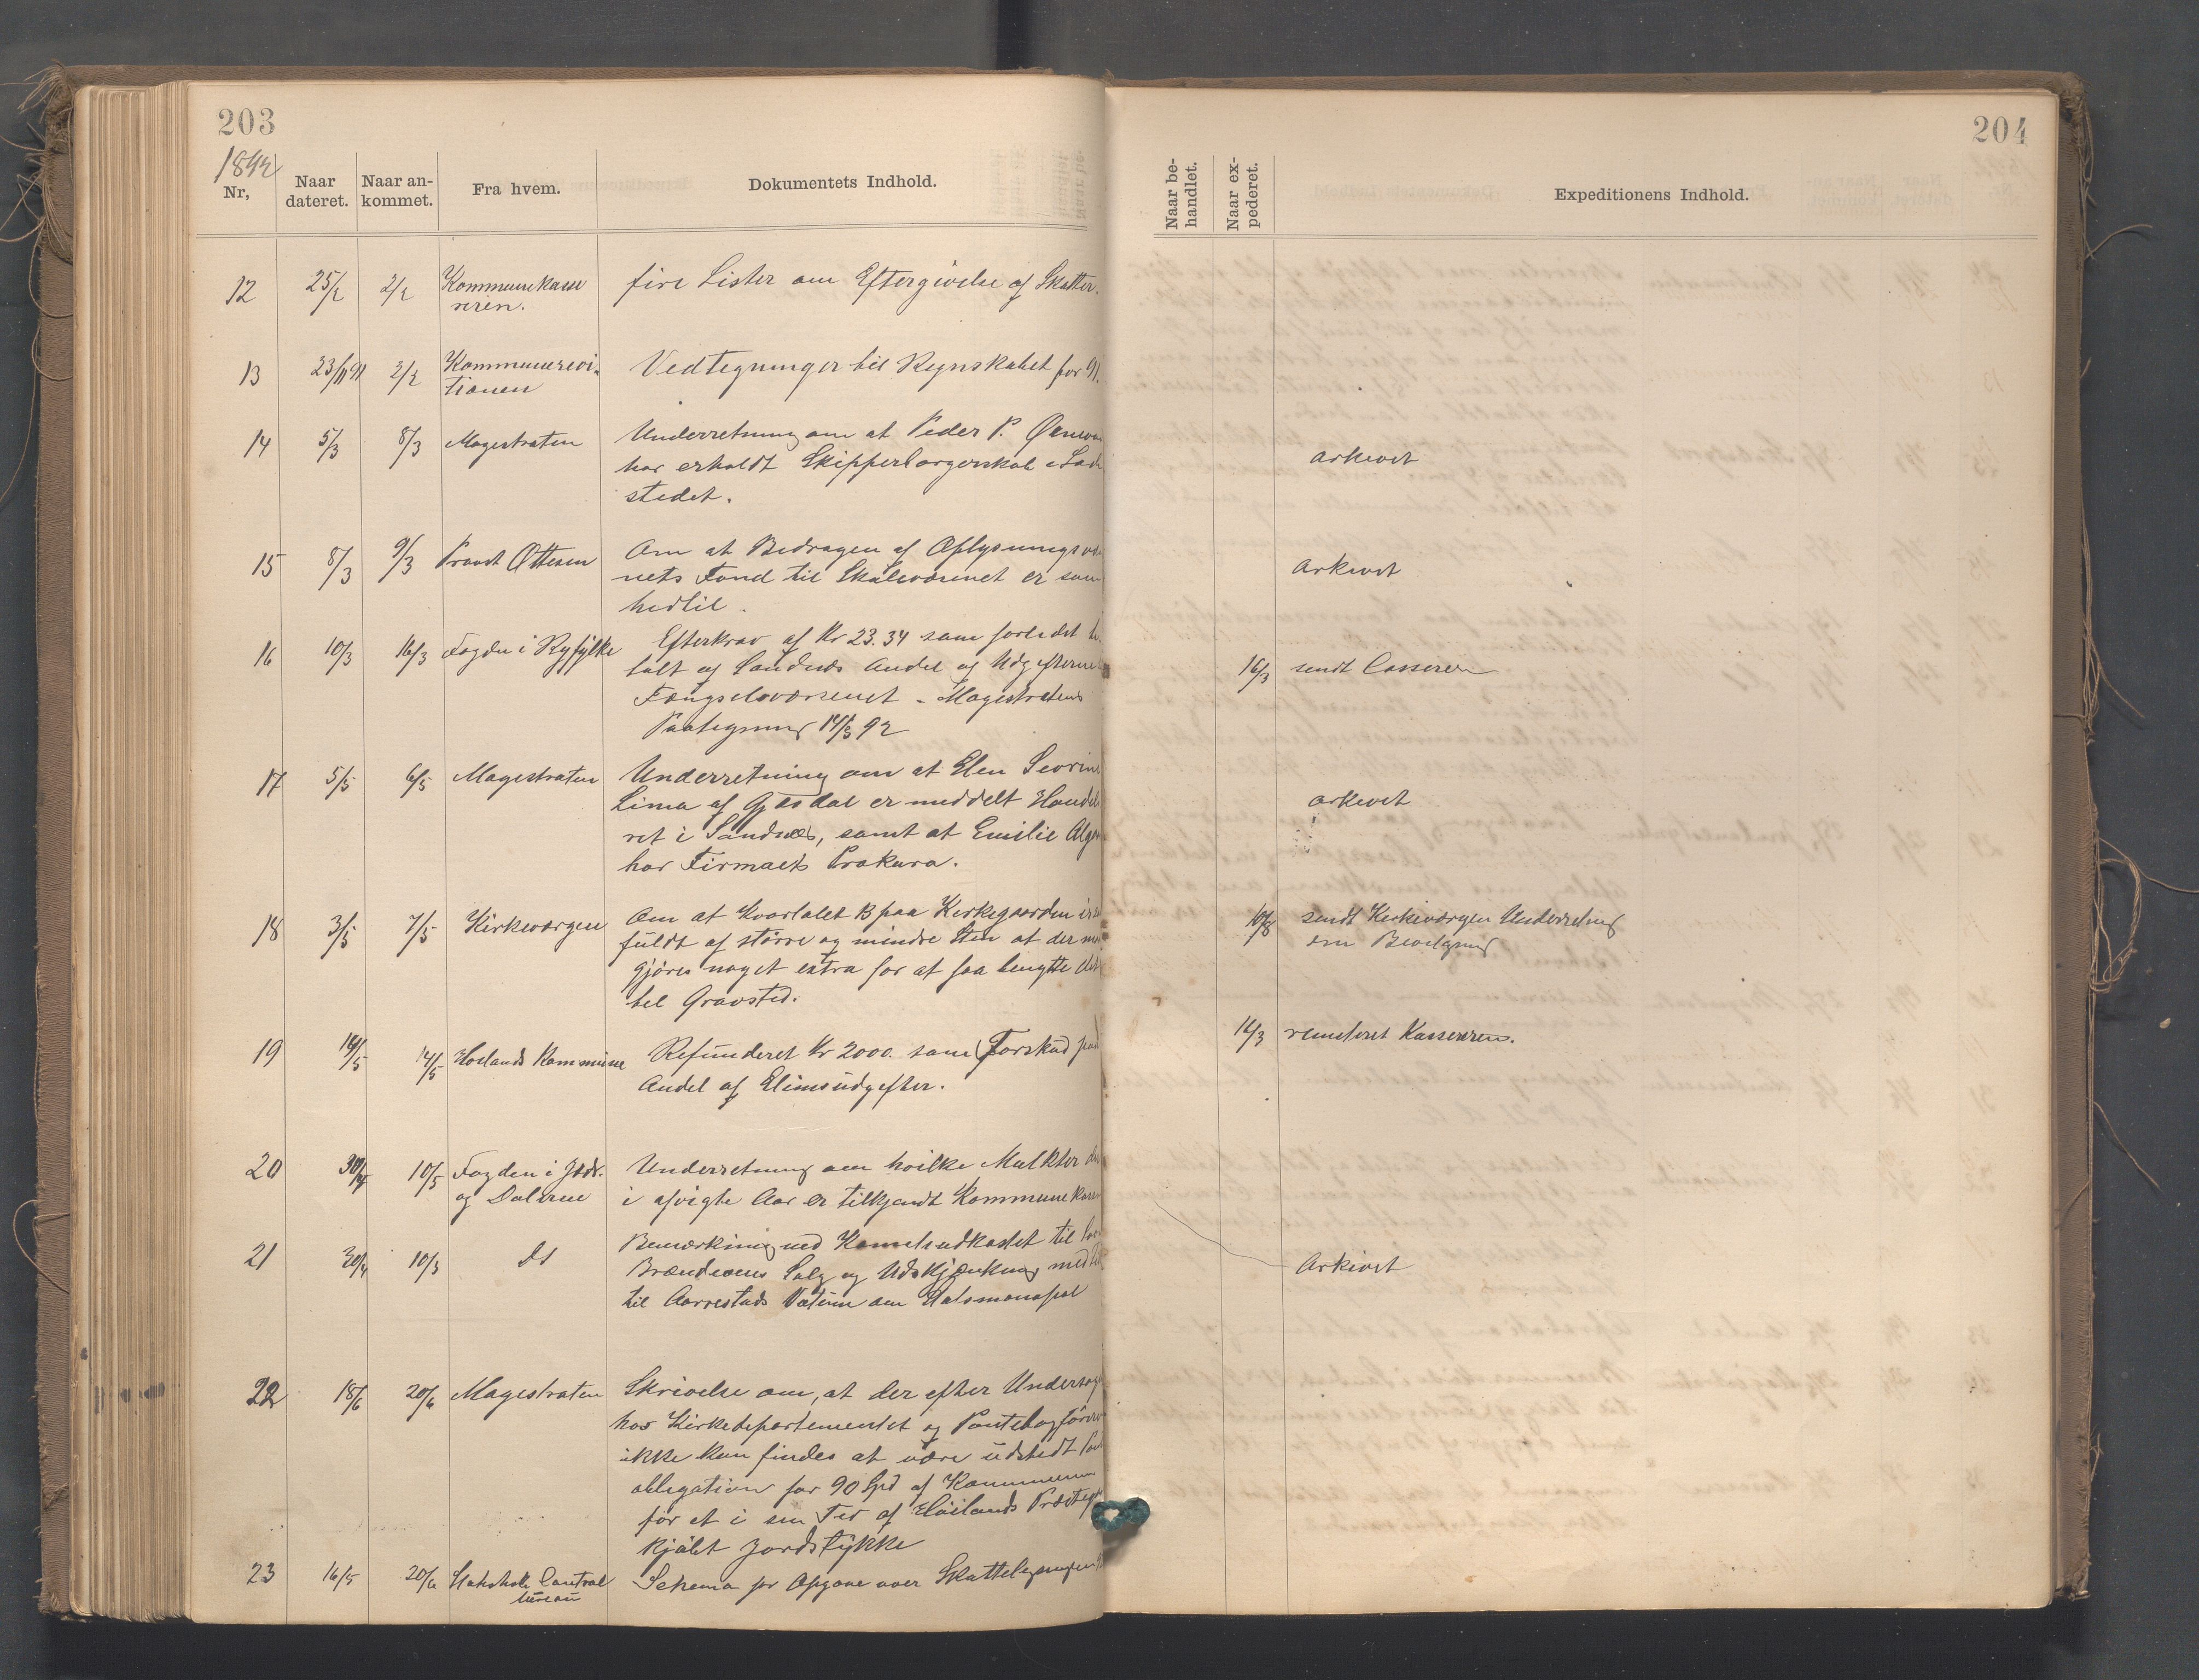 203
1892
Nr,
Naar dateret.
Naar ankommet.
Fra hvem.
Dokumentets Indhold.
12 25/2 2/2 Kommunekasse
reren.
fire Lister om Eftergivelse af Skatter.
13 23/11 91 2/2 Kommunerevi-
tionen
Vedtegninger til Regnskabet for 91.
14 5/3 8/3 Magestraten
Underretning om at Peder P.
har erholdt Skipperborgerskab i Lade
stedet.
15 8/3 9/3 Provst Ottesen
Om at Bedragen af Oplysningsvæ
nets Fond til Skolevæsenet er som
hedtil.
16 10/3 16/3 Fogden i Ryfylke
Efterkrav af Kr 23.34 som forledet be
talt af Sandnæs Andel af Udgifterne
Fængselsvæsenet - Magestratens
Paategning 14/3 92
17 5/5 6/5 Magestraten
Underretning om at Elen Sevrine
Lima af Gjesdal er meddelt Handels
ret i Sandnæs, samt at Emilie
har Firmaets Prokura.
18 3/5 7/5 Kirkeværgen
Om at Kvartalet B paa Kirkegaarden er saa
fuldt af större og mindre Sten at der maa
gjöres noget extra for at faa benytte det
til Gravsted.
19 14/5 14/5 Höilands Kommune
Refunderet Kr 2000 som Forskud paa
Andel af Elimsudgifter.
20 30/4 10/5 Fogden i Jæd.
og Dalerne
Underretning om hvilke Mulkter der
i afvigte Aar er tilkjendt Kommunekassen
21 30/4 10/5 ds
Bemærkning ved Komiteudkastet til Lov
Brændevins Salg og Udskjænkning med
til Aarrestads Votum om Statsmonopol
22 18/6 20/6 Magestraten
Skrivelse om, at der efter Undersøg
hos Kirkedepartementet og Pantebogføreren
ikke kan findes at være udstedt Pante
obligation for 90 Spd af Kommunen
for et i sin Tid af Höilands Præsteg
kjöbt Jordstykke
23 16/5 20/6 Statistisk Central
bureau
Schema for Opgave over Skatteligningen
204
Naar behandlet.
Naar expederet.
Expeditionens Indhold.
arkivet
Arkivet
16/3 sendt Casseren
arkivet
10/8 sendt Kirkeværgen Underretning
om Bevilgning
14/3 remiteret Kassereren.
Arkivet